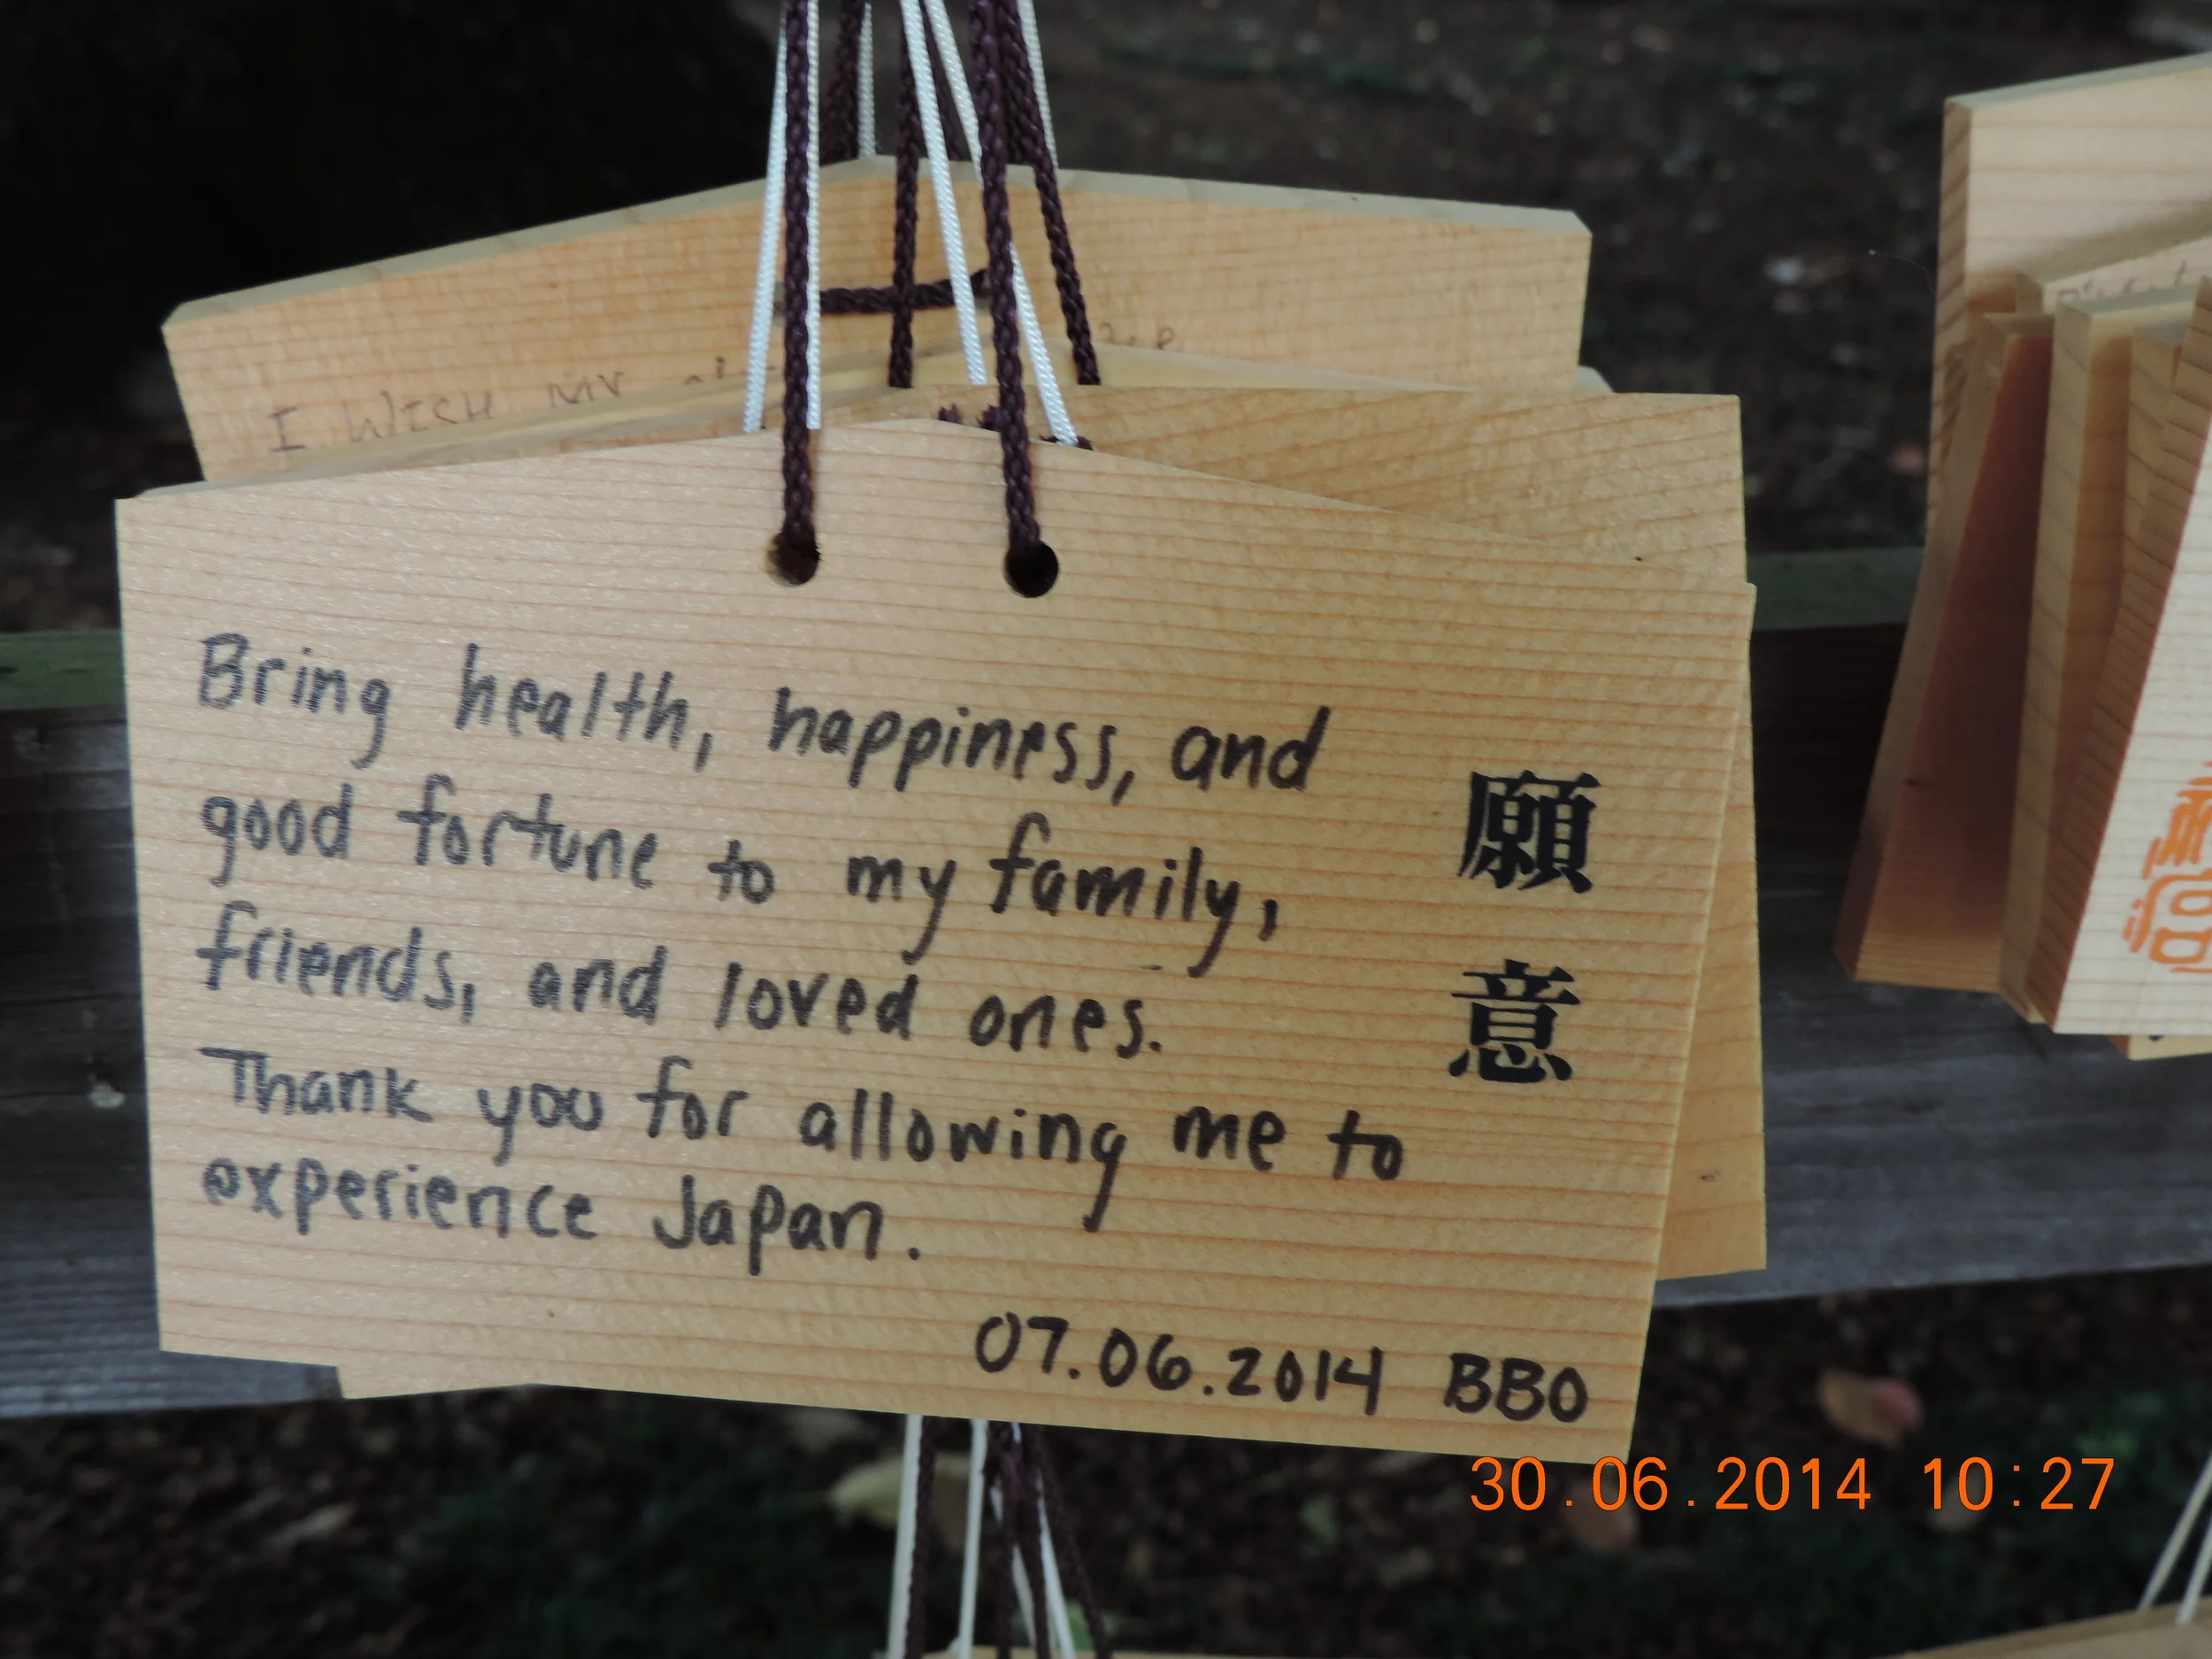 I WISH MY
Bring health, happiness, and
good fortune to my family,
friends, and loved ones.
Thank you for allowing me to
experience Japan.
07.06.2014 BBO
願
意
30.06.2014 10:27